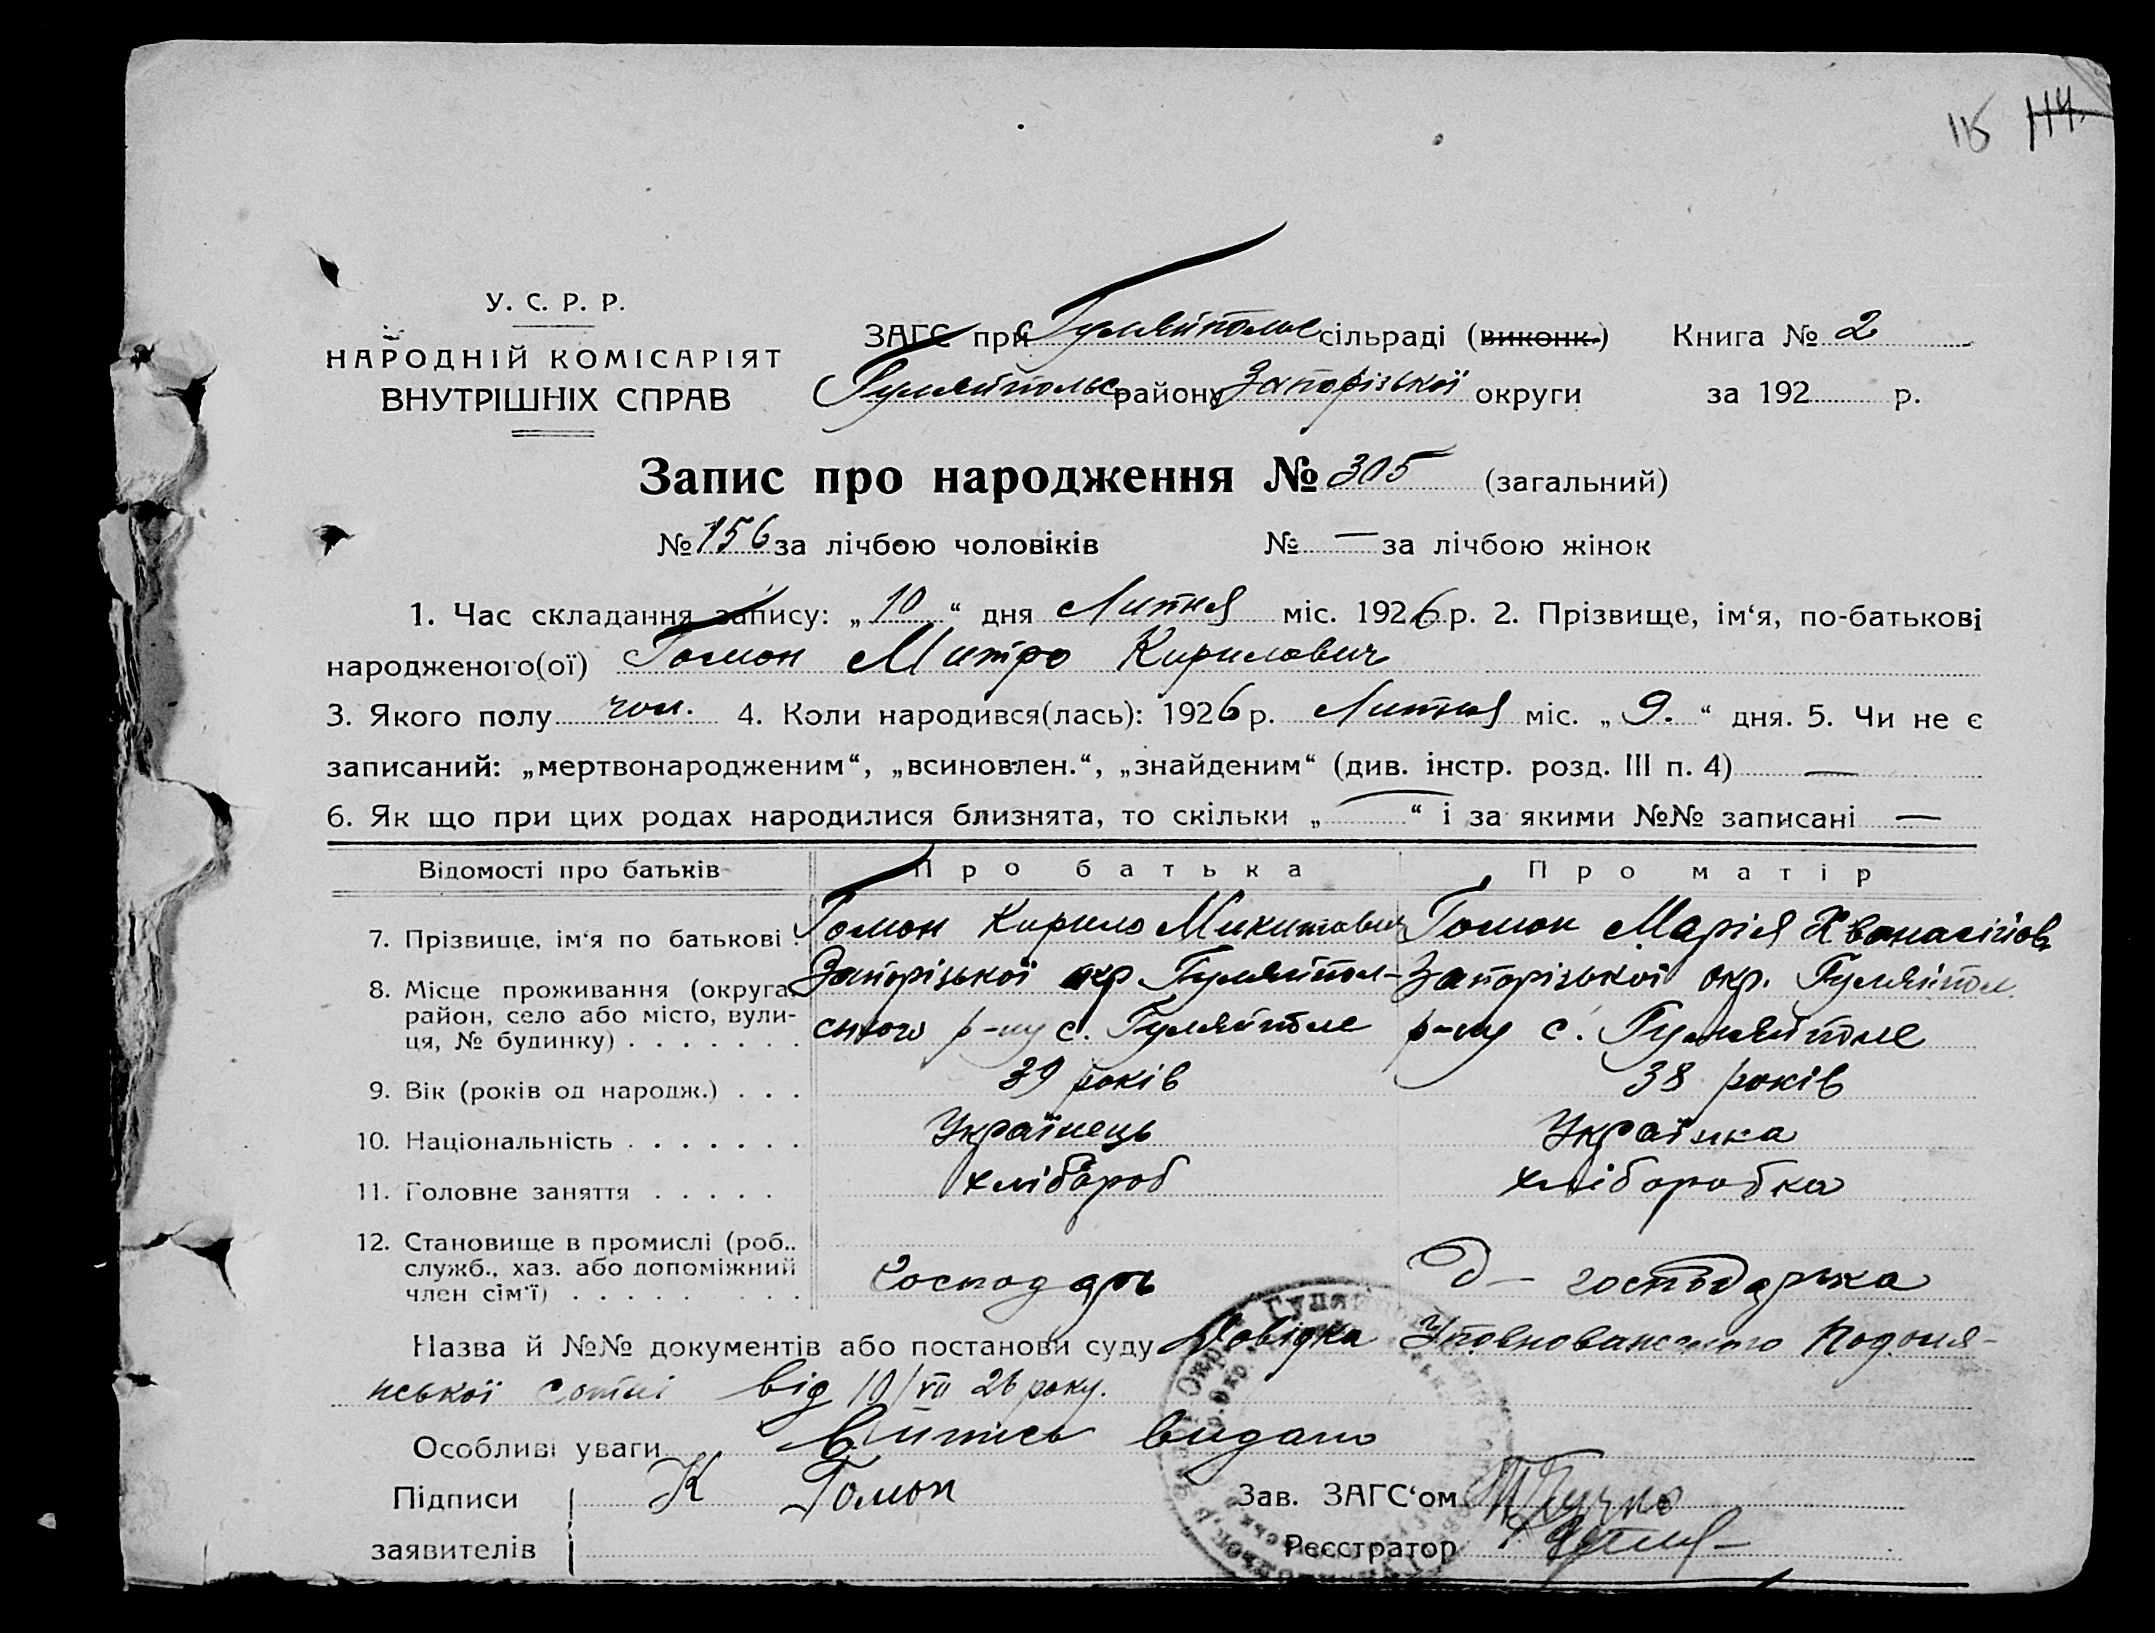 115 114
У. С. Р. Р.
НАРОДНІЙ КОМІСАРІЯТ
ВНУТРІШНІХ СПРАВ
ЗАГС при Гуляйпольс сільраді (виконк.) Книга № 2
Гуляйпольс району Запорізької округи за 192 р.
Запис про народження № 305 (загальний)
№ 156 за лічбою чоловіків № — за лічбою жінок
1. Час складання запису: „ 10 “ дня Липня міс. 1926 р. 2. Прізвище, ім‘я, по-батькові
народженого(ої) Гомон Митро Кирилович
3. Якого полу чол. 4. Коли народився(лась): 1926 р. Липня міс. „ 9. “ дня. 5. Чи не є
записаний: „мертвонародженим“, „всиновлен.“, „знайденим“ (див. інстр. розд. III п. 4) —
6. Як що при цих родах народилися близнята, то скільки „ — “ і за якими №№ записані —
Відомості про батьків Про батька Про матір
7. Прізвище, ім‘я по батькові . Гомон Кирило Микитович Гомон Марія Хванасійов
8. Місце проживання (округа, Запорізької окр Гуляйпол- Запорізької окр. Гуляйпол.
район, село або місто, вули- ського р-ну с. Гуляйполе р-ну с. Гуляйполе
ця, № будинку) . . . . . . .
9. Вік (років од народж.) . . . 39 років 38 років
10. Національність . . . . . . . Українець Українка
11. Головне заняття . . . . . хлібороб хліборобка
12. Становище в промислі (роб.,
служб., хаз. або допоміжний Господарь Д — господарька
член сім‘ї) . . . . . . . . .
Назва й №№ документів або постанови суду Довідка Уповноваженого Подоля-
нської сотні від 10/VII 26 року.
Особливі уваги Випись видано
Підписи К Гомон Зав. ЗАГС‘ом
заявителів Реєстратор